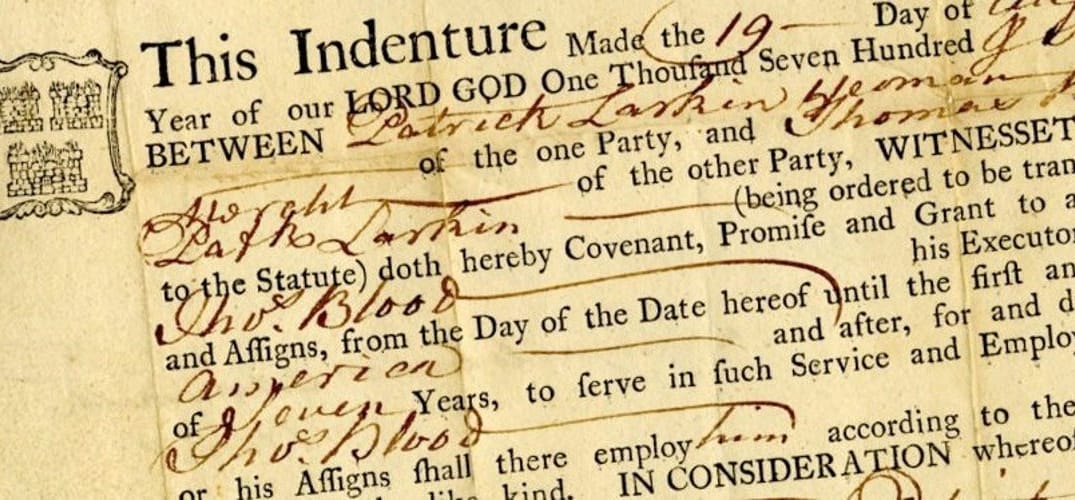 This Indenture Made the 19 Day of
Year of our LORD GOD One Thouſand Seven Hundred
BETWEEN Patrick Larkin Yeoman
of the one Party, and Thomas
of the other Party, WITNESSET
Patk Larkin (being ordered to be tran
to the Statute) doth hereby Covenant, Promiſe and Grant to
Thos. Blood his Executo
and Aſſigns, from the Day of the Date hereof until the firſt an
America and after, for and d
of Seven Years, to ſerve in ſuch Service and Employ
Thos. Blood
or his Aſſigns ſhall there employ him according to the
like kind. IN CONSIDERATION whereof